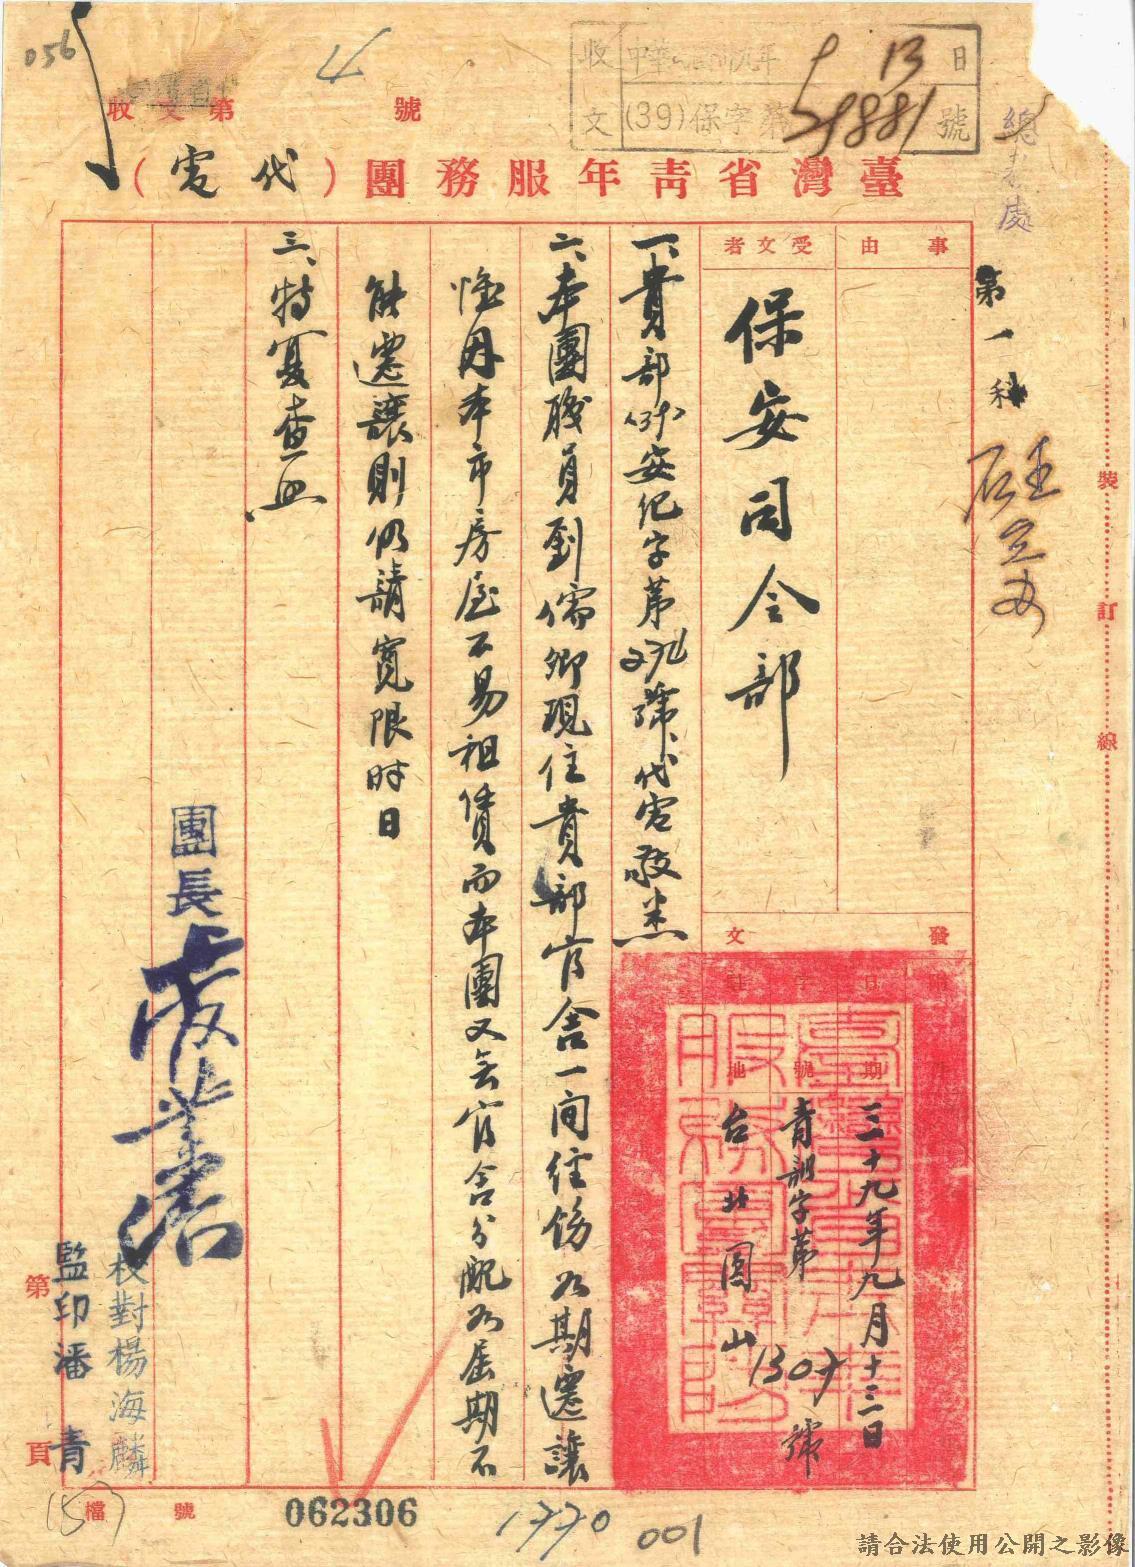 056
收文第 號
收 中華民國卅九年 13 日
文 (39)保字第 號
臺灣省靑年服務團(代電)
總務處
第一科
事由
受文者
保安司令部
發文
日期 三十九年九月十三日
字號 青韶字第1307號
駐地 台北圓山
一、貴部 安紀字第 號代電敬悉
二、本團職員劉儒卿現住貴部官舍一間住飭如期遷讓
惟因本市房屋不易租賃而本團又無官舍分配如屆期不
能遷讓則仍請寬限時日
三、特复查照
團長
校對楊海麟
監印潘青
第 頁
裝
訂
線
檔 號
(15)
062306
1770
001
請合法使用公開之影像